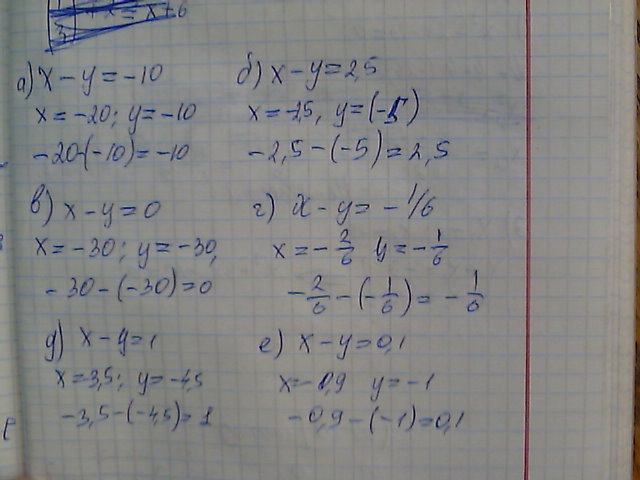 x = x + 6
3
а) x - y = -10
x = -20; y = -10
-20-(-10) = -10
б) x - y = 2,5
x = -2,5, y = (-5)
-2,5 - (-5) = 2,5
в) x - y = 0
x = -30; y = -30,
-30 - (-30) = 0
г) x - y = -1/6
x = -2/6 y = -1/6
-2/6 - (-1/6) = -1/6
д) x - y = 1
x = 3,5; y = -4,5
-3,5 - (-4,5) = 1
е) x - y = 0,1
x = -0,9 y = -1
-0,9 - (-1) = 0,1